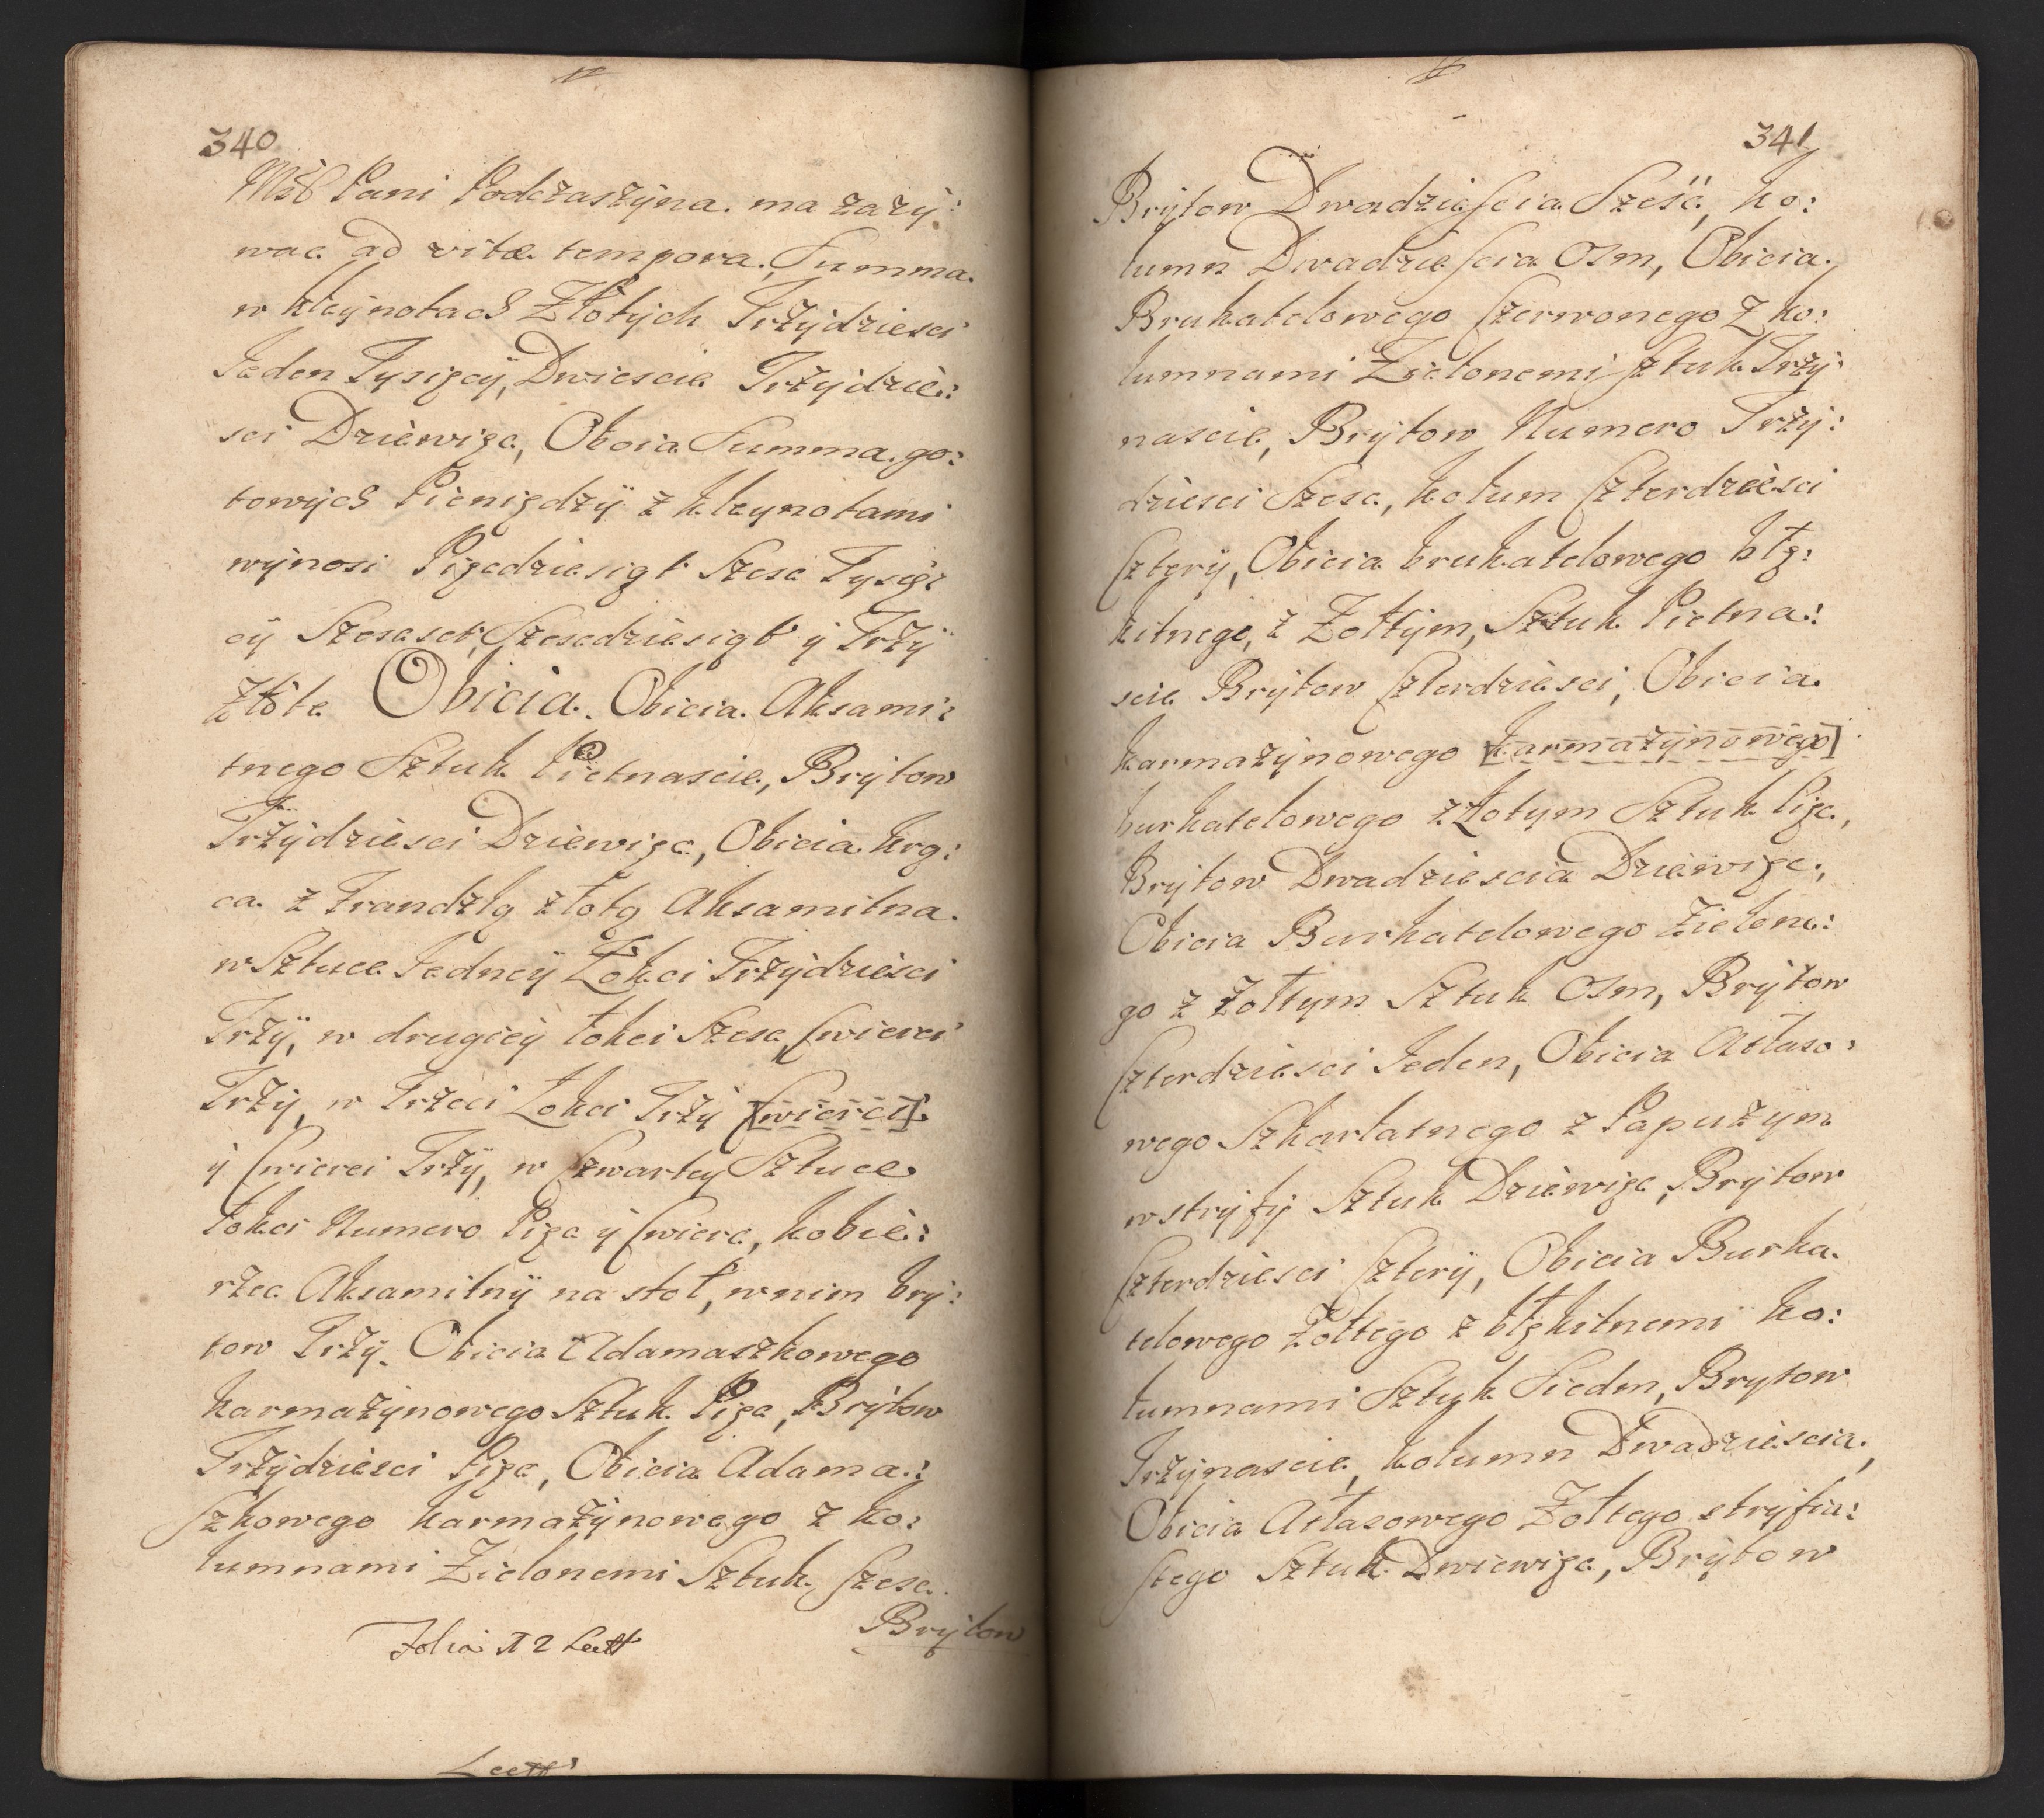 340
Mść Pani Podczaszyna. ma zazy:
wac ad vitæ tempora. Summa.
w kleynotach Złotych Trzydziesci
Jeden Tysięcy, Dwiescie Trzydzie:
sci Dziewięc, Oboia Summa. go:
towych Pieniędzy z kleynotami
wynosi Pięcdziesiąt Szesc Tysię:
cy Szescset, Szescdziesiąt y Trzy
złote Obicia. Obicia. Aksami:
tnego Sztuk Pietnascie, Brytow
Trzydziesci Dziewięc, Obicia krą:
ca. z Frandzlą złotą Aksamitna.
w Sztuce Jedney Łokci Trzydziesci
Trzy, w drugiey łokci Szesc, Cwierci
Trzy, w Trzeci Łokci Trzy [Cwierci]
y Cwierci Trzy, w Czwartey Sztuce
łokci Numero Pięc y Cwierc, kobie:
rzec Aksamitny na stoł, w nim bry:
tow Trzy. Obicia Adamaszkowego
karmazynowego Sztuk Pięc, Brytow
Trzydziesci Pięc, Obicia Adama:
szkowego karmazynowego z ko:
lumnami Zielonemi Sztuk, Szesc.
Brytow
Folia 12 Lett
341
Brytow Dwadziescia Sześć, ko:
lumn Dwadziescia Osm, Obicia.
Brukatelowego Czerwonego z ko:
lumnami Zielonemi sztuk Trzy:
nascie, Brytow Numero Trzy:
dziesci Szesc, kolum Czterdziesci
Cztery, Obicia brukatelowego błę:
kitnego, z Żołtym, Sztuk Pietna:
scie Brytow Czterdziesci, Obicia.
karmazynowego [karmazynowego]
burkatelowego z złotym Sztuk Pięc,
Brytow Dwadziescia Dziewięc,
Obicia Burkatelowego Zielone:
go z żołtym Sztuk Osm, Brytow
Czterdziesci Jeden, Obicia Atłaso:
wego Szkarłatnego z Papużym
w stryfy Sztuk Dziewięc, Brytow
Czterdziesci Cztery, Obicia Burka.
telowego żołtego z błękitnemi ko:
lumnami Sztuk Siedm, Brytow
Trzynascie, kolumn Dwadziescia,
Obicia Atłasowego Żołtego stryfia:
stego Sztuk Dwiewięc, Brytow